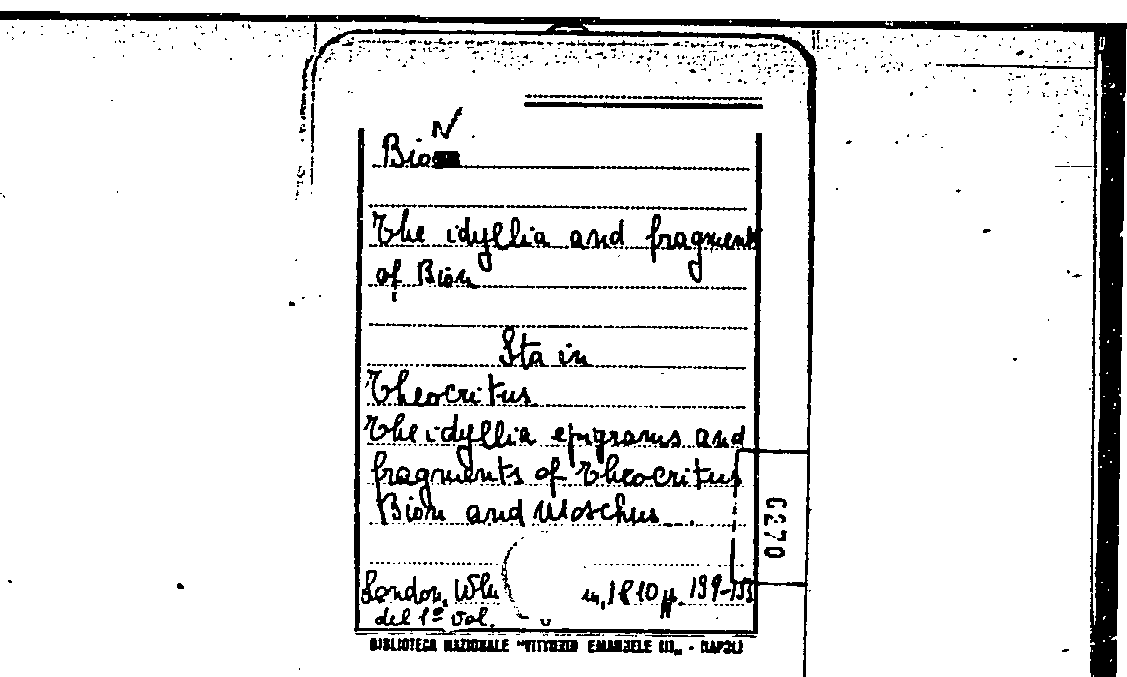 Bion
The idyllia and fragments
of Bion
Sta in
Theocritus
The idyllia epigrams and
fragments of Theocritus
Bion and Moschus
London, Whi n, 1810 pp.
del 1º vol.
0270
BIBLIOTECA NAZIONALE "VITTORIO EMANUELE III" - NAPOLI